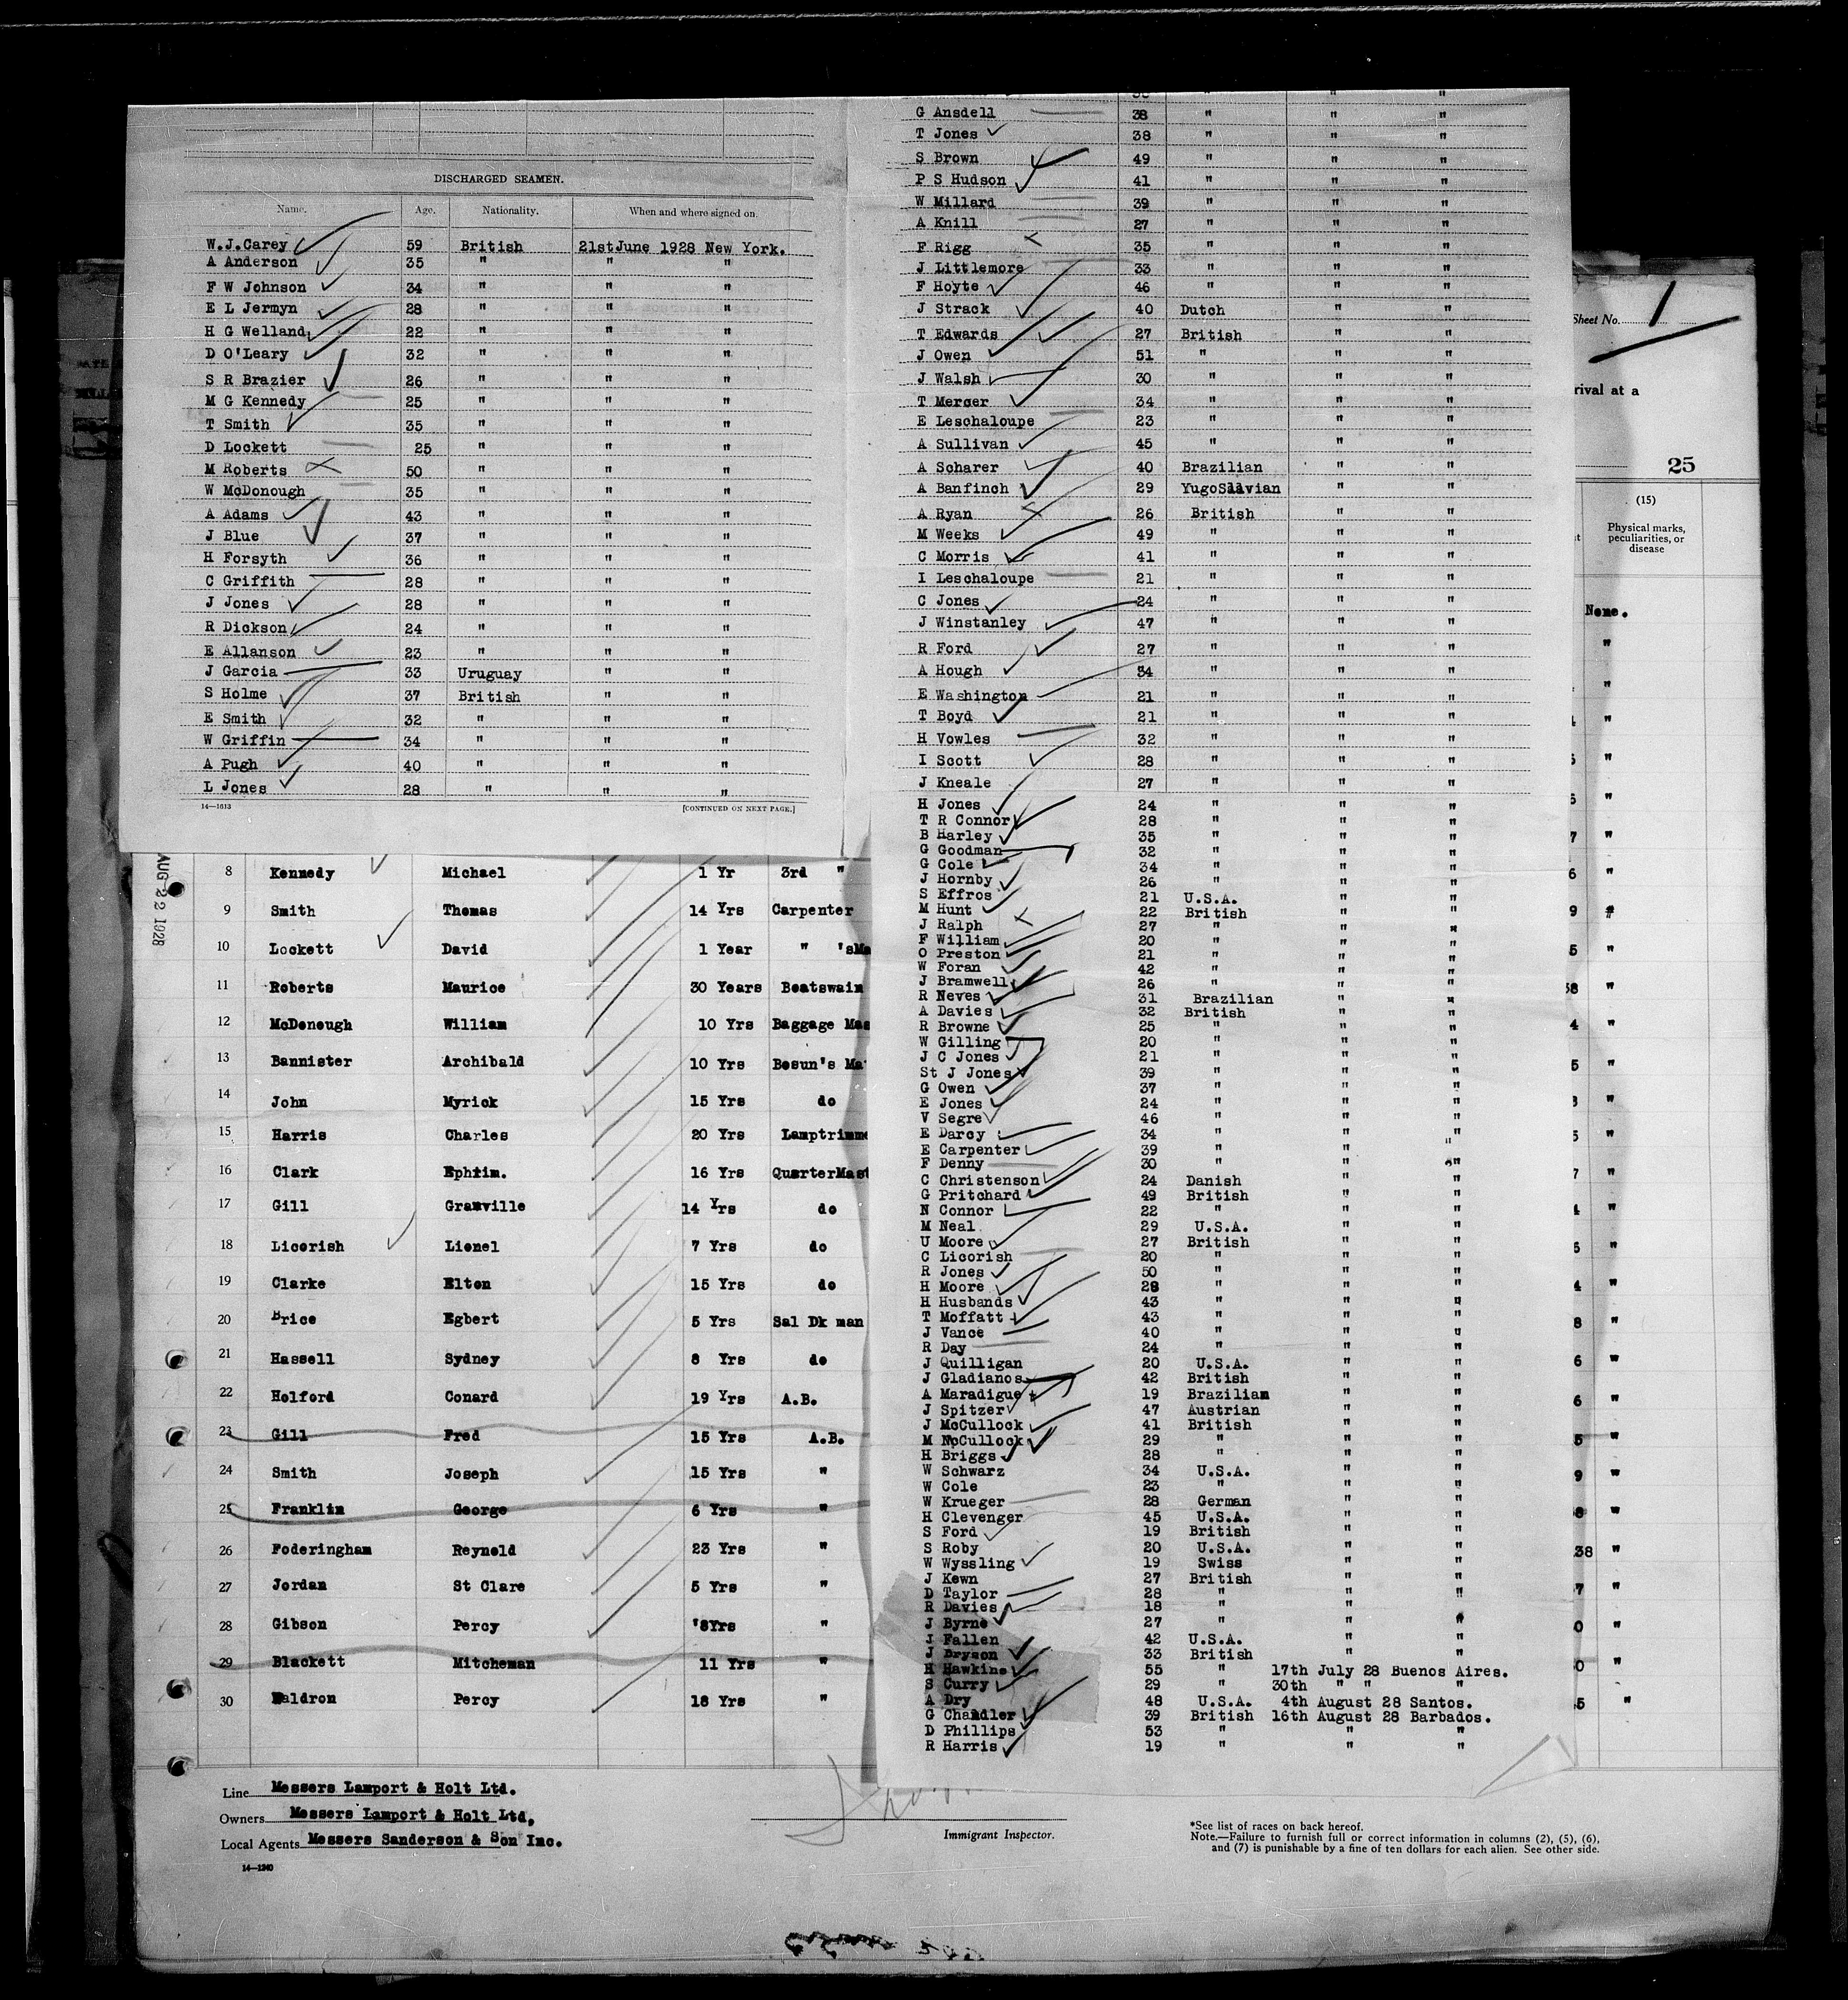 DISCHARGED SEAMEN.
Name. Age. Nationality. When and where signed on.
W.J.Carey 59 British 21stJune 1928 New York.
A Anderson 35 " " "
F W Johnson 34 " " "
E L Jermyn 28 " " "
H G Welland 22 " " "
D O'Leary 32 " " "
S R Brazier 26 " " "
M G Kennedy 25 " " "
T Smith 35 " " "
D Lockett 25 " " "
M Roberts 50 " " "
W McDonough 35 " " "
A Adams 43 " " "
J Blue 37 " " "
H Forsyth 36 " " "
C Griffith 28 " " "
J Jones 28 " " "
R Dickson 24 " " "
E Allanson 23 " " "
J Garcia 33 Uruguay " "
S Holme 37 British " "
E Smith 32 " " "
W Griffin 34 " " "
A Pugh 40 " " "
L Jones 28 " " "
14—1613 [CONTINUED ON NEXT PAGE.]
G Ansdell 38 " " "
T Jones 38 " " "
S Brown 49 " " "
P S Hudson 41 " " "
W Millard 39 " " "
A Knill 27 " " "
F Rigg 35 " " "
J Littlemore 33 " " "
F Hoyte 46 " " "
J Strack 40 Dutch " "
T Edwards 27 British " "
J Owen 51 " " "
J Walsh 30 " " "
T Mercer 34 " " "
E Leschaloupe 23 " " "
A Sullivan 45 " " "
A Scharer 40 Brazilian " "
A Banfinch 29 YugoSlavian " "
A Ryan 26 British " "
M Weeks 49 " " "
C Morris 41 " " "
I Leschaloupe 21 " " "
C Jones 24 " " "
J Winstanley 47 " " "
R Ford 27 " " "
A Hough 34 " " "
E Washington 21 " " "
T Boyd 21 " " "
H Vowles 32 " " "
I Scott 28 " " "
J Kneale 27 " " "
H Jones 24 " " "
T R Connor 28 " " "
B Harley 35 " " "
G Goodman 32 " " "
G Cole 34 " " "
J Hornby 26 " " "
S Effros 21 U.S.A. " "
M Hunt 22 British " "
J Ralph 27 " " "
F William 20 " " "
O Preston 21 " " "
W Foran 42 " " "
J Bramwell 26 " " "
R Neves 31 Brazilian " "
A Davies 32 British " "
R Browne 25 " " "
W Gilling 20 " " "
J C Jones 21 " " "
St J Jones 39 " " "
G Owen 37 " " "
E Jones 24 " " "
V Segre 46 " " "
E Darcy 34 " " "
E Carpenter 39 " " "
F Denny 30 " " "
C Christenson 24 Danish " "
G Pritchard 49 British " "
N Connor 22 " " "
M Neal 29 U.S.A. " "
U Moore 27 British " "
C Licorish 20 " " "
R Jones 50 " " "
H Moore 28 " " "
H Husbands 43 " " "
T Moffatt 43 " " "
J Vance 40 " " "
R Day 24 " " "
J Quilligan 20 U.S.A. " "
J Gladianos 42 British " "
A Maradigue 19 Brazilian " "
J Spitzer 47 Austrian " "
J McCullock 41 British " "
M McCullock 29 " " "
H Briggs 28 " " "
W Schwarz 34 U.S.A. " "
W Cole 23 " " "
W Krueger 28 German " "
H Clevenger 45 U.S.A. " "
S Ford 19 British " "
S Roby 20 U.S.A. " "
W Wyssling 19 Swiss " "
J Kewn 27 British " "
D Taylor 28 " " "
R Davies 18 " " "
J Byrne 27 " " "
J Fallen 42 U.S.A. " "
J Bryson 33 British " "
H Hawkins 55 " 17th July 28 Buenos Aires.
S Curry 29 " 30th " " "
A Dry 48 U.S.A. 4th August 28 Santos.
G Chandler 39 British 16th August 28 Barbados.
D Phillips 53 " " "
R Harris 19 " " "
Sheet No. 1
rival at a
25
(15)
Physical marks, peculiarities, or disease
None.
AUG 22 1928
8 Kennedy Michael 1 Yr 3rd "
9 Smith Thomas 14 Yrs Carpenter
10 Lockett David 1 Year " 'sMa
11 Roberts Maurice 30 Years Boatswain
12 McDonough William 10 Yrs Baggage Mas
13 Bannister Archibald 10 Yrs Bosun's Ma
14 John Myrick 15 Yrs do
15 Harris Charles 20 Yrs Lamptrimme
16 Clark Ephrim. 16 Yrs QuarterMast
17 Gill Granville 14 Yrs do
18 Licorish Lionel 7 Yrs do
19 Clarke Elton 15 Yrs do
20 Brice Egbert 5 Yrs Sal Dk man
21 Hassell Sydney 8 Yrs do
22 Holford Conard 19 Yrs A.B.
23 Gill Fred 15 Yrs A.B.
24 Smith Joseph 15 Yrs "
25 Franklin George 6 Yrs "
26 Foderingham Reynold 23 Yrs "
27 Jordan St Clare 5 Yrs "
28 Gibson Percy '8Yrs "
29 Blackett Mitcheman 11 Yrs "
30 Waldron Percy 18 Yrs "
Line Messers Lamport & Holt Ltd.
Owners Messers Lamport & Holt Ltd,
Local Agents Messers Sanderson & Son Inc.
14—1240
Immigrant Inspector.
*See list of races on back hereof.
Note.—Failure to furnish full or correct information in columns (2), (5), (6),
and (7) is punishable by a fine of ten dollars for each alien. See other side.